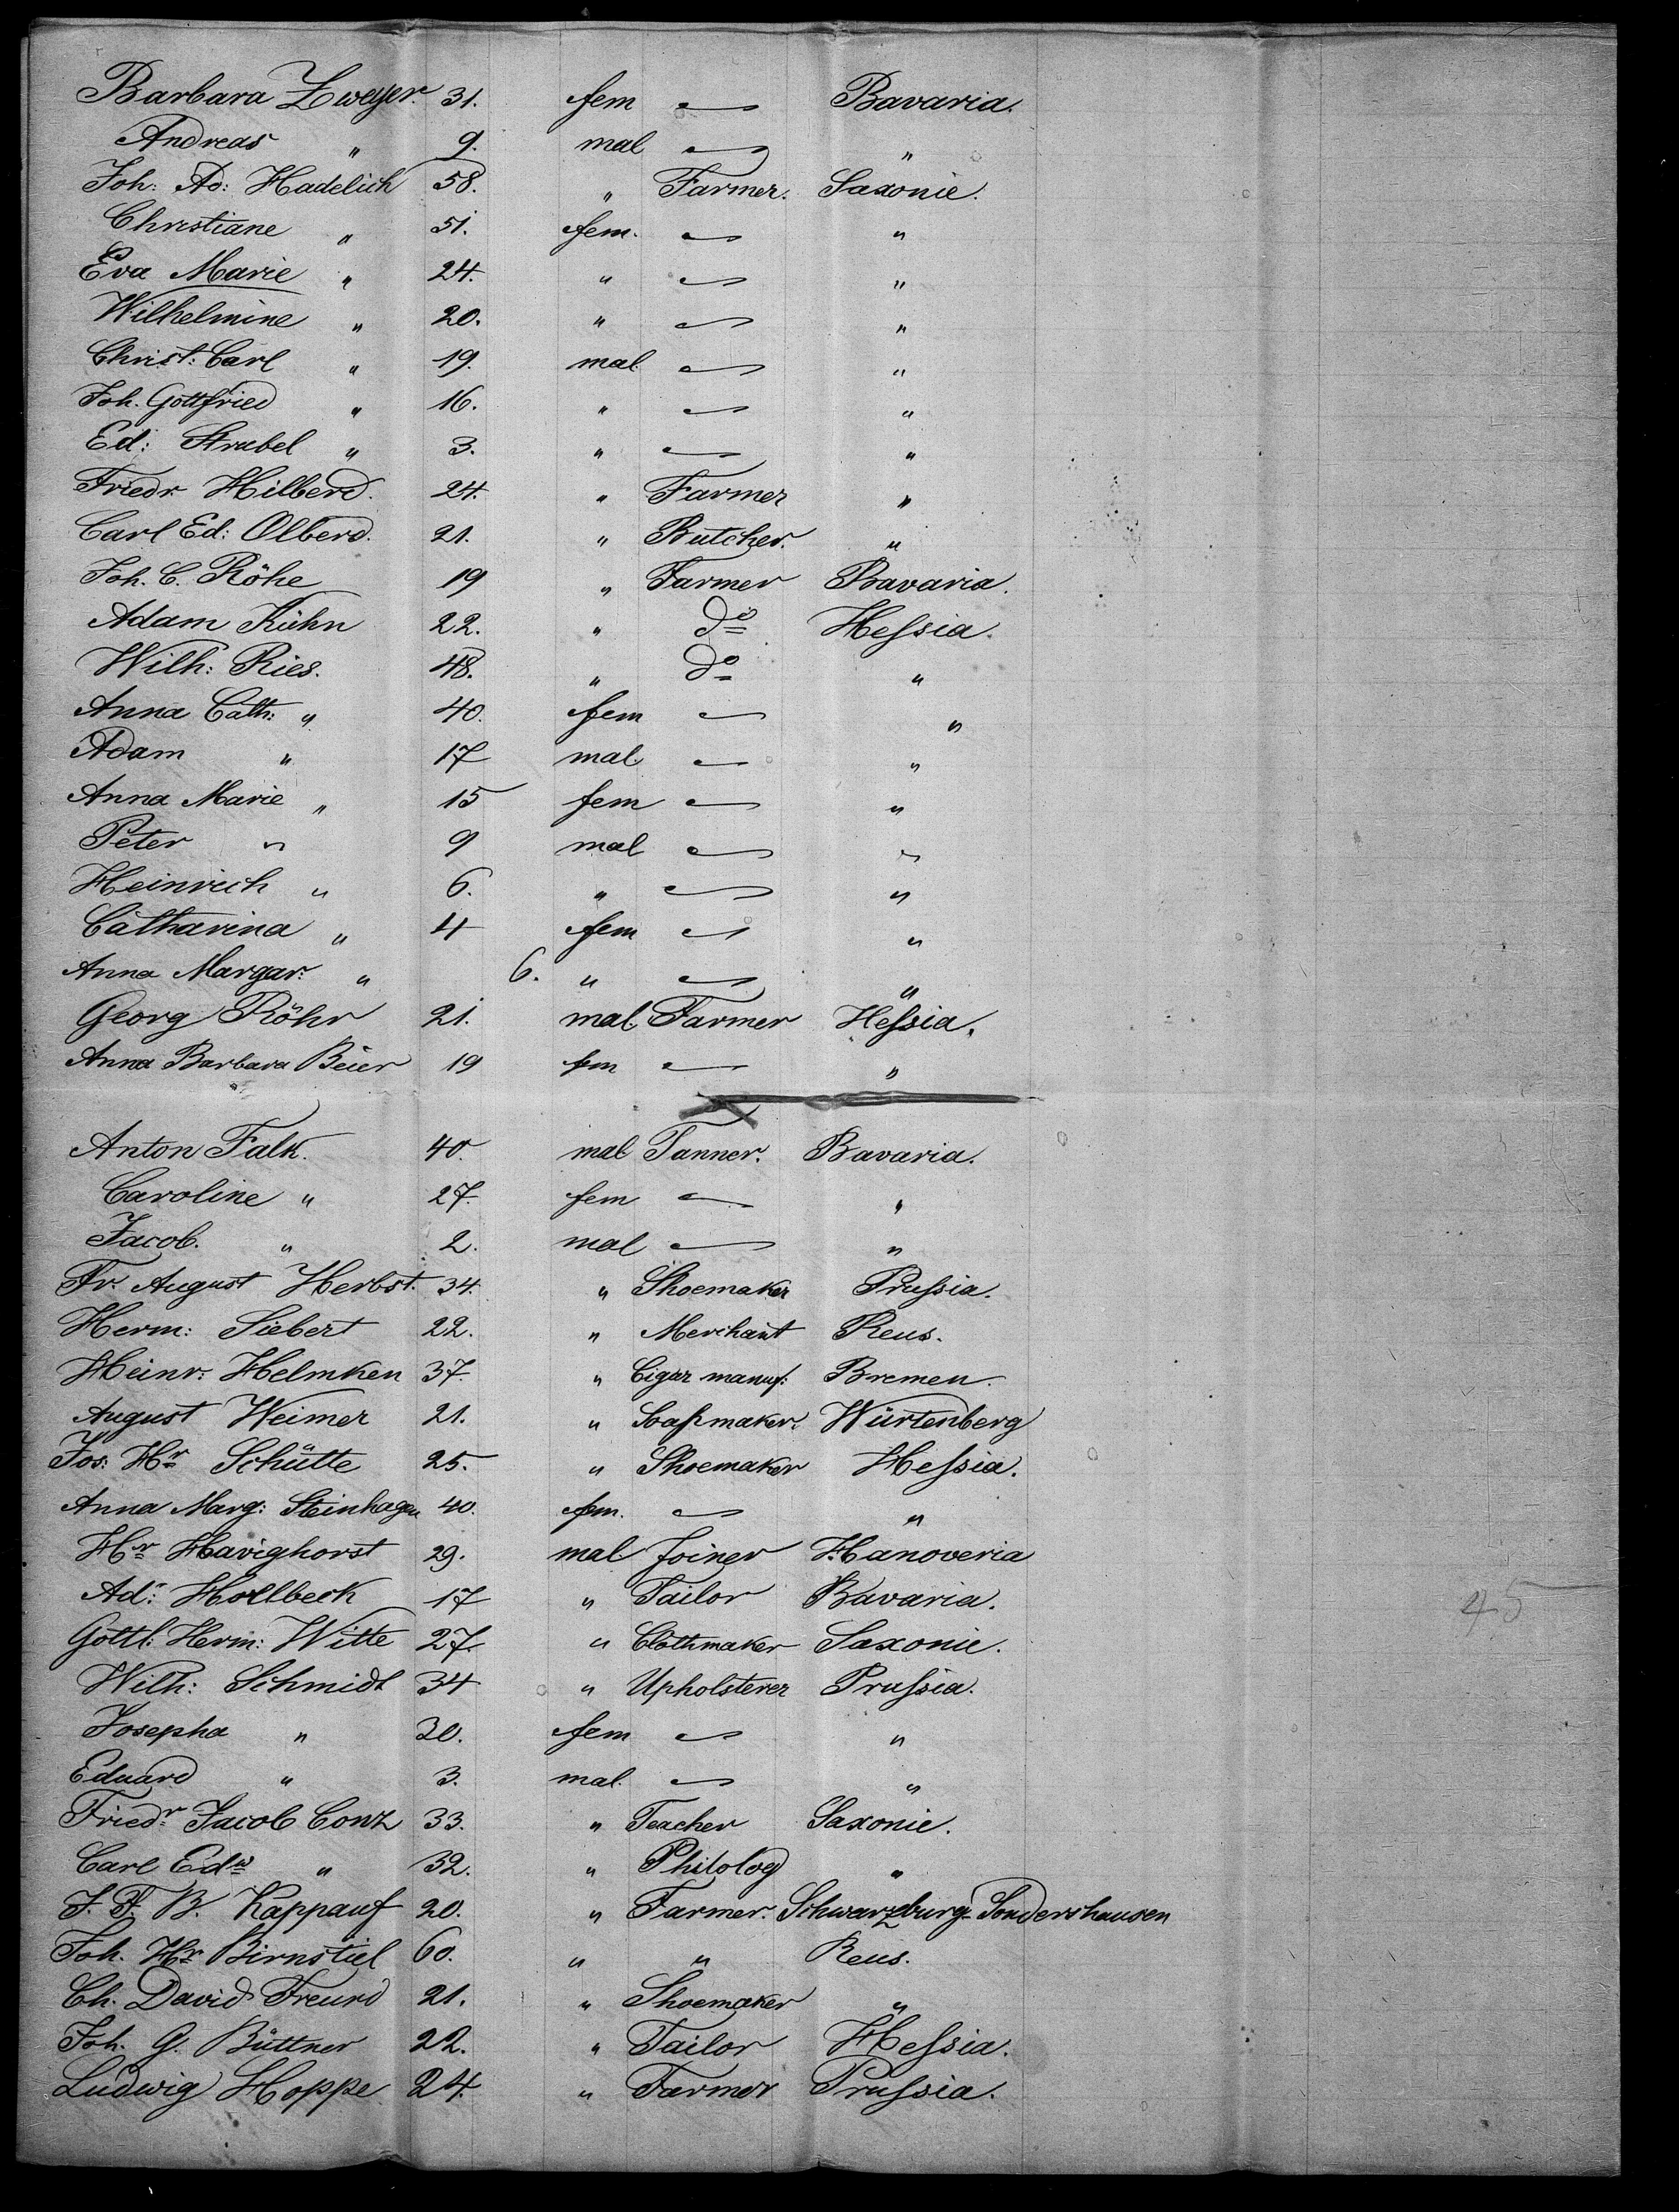 Barbara Zweyer. 31. fem — Bavaria.
Andreas " 9. mal — "
Joh: Ad: Hadelich 58. " Farmer. Saxonie.
Christiane " 51. fem. — "
Eva Marie " 24. " — "
Wilhelmine " 20. " — "
Christ: Carl " 19. mal. — "
Joh. Gottfried " 16. " — "
Ed: Strubel " 3. " — "
Friedr. Hilberd. 24. " Farmer "
Carl Ed: Olberd. 21. " Butcher. "
Joh. C. Röhe 19 " Farmer Bavaria.
Adam Kühn 22. " do Heſsia.
Wilh: Ries. 48. " do "
Anna Cath: " 40. fem — "
Adam " 17 mal. — "
Anna Marie " 15 fem — "
Peter " 9 mal — "
Heinrich " 6. " — "
Catharina " 4 fem — "
Anna Margar: " 6. " — "
Georg Röhr 21. mal. Farmer Heſsia.
Anna Barbara Beier 19 fem — "
Anton Falk. 40. mal Tanner. Bavaria.
Caroline " 27. fem — "
Jacob. " 2. mal — "
Fr. August Herbst. 34. " Shoemaker Pruſsia.
Herm: Siebert 22. " Merchant Reus.
Heinr: Helmken 37. " Cigar manuf: Bremen.
August Weimer 21. " Soapmaker. Würtenberg
Jos: Hr Schütte 25. " Shoemaker Heſsia.
Anna Marg: Steinhagen 40. fem. — "
Hr Havighorst 29. mal Joiner Hanoveria
Ad: Hollbeck 17 " Tailor Bavaria.
Gottl: Herm: Witte 27. " Clothmaker Saxonie.
Wilh: Schmidt 34 " Upholsterer Pruſsia.
Josepha " 30. fem — "
Eduard " 3. mal. — "
Friedr Jacob Conz 33. " Teacher Saxonie.
Carl Edw " 32. " Philolog "
J. F. B. Kappauf 20. " Farmer. Schwarzburg-Sondershausen
Joh. Hr Birnstiel 60. " " Reus.
Ch. David Freund 21. " Shoemaker "
Joh. G. Büttner 22. " Tailor Heſsia.
Ludwig Hoppe 24. " Farmer Pruſsia.
45